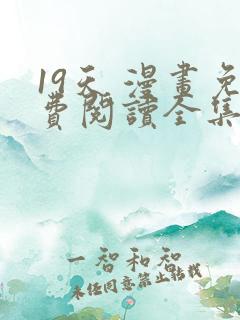 19天 漫畫免
費閱讀全集
一智和智
未任同意禁止转载